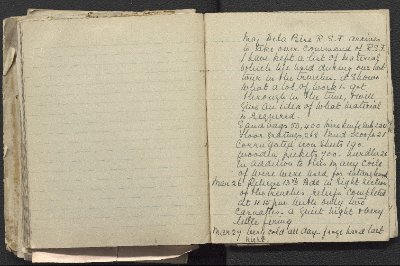 Maj Dela Pere R.S.F. arrives
to take over Command of R.S.F.
I have kept a list of material
which we used during our last
tour in the trenches. it shows
what a lot of work is got
through in the time, & will
give an idea of what material
is required.
Sand bags 50,400
Floor gratings 268
Corrugated iron sheets 190.
Wooden pickets 700. hurdles 26
In addition to this many coils
of wire were used for
Mar 26 Relieve 13th Bde in right section
of the trenches, relief completed
at 11.15 pm with only two
casualties a quiet night & very
little firing
Mar 27 very cold all day froze hard last
night